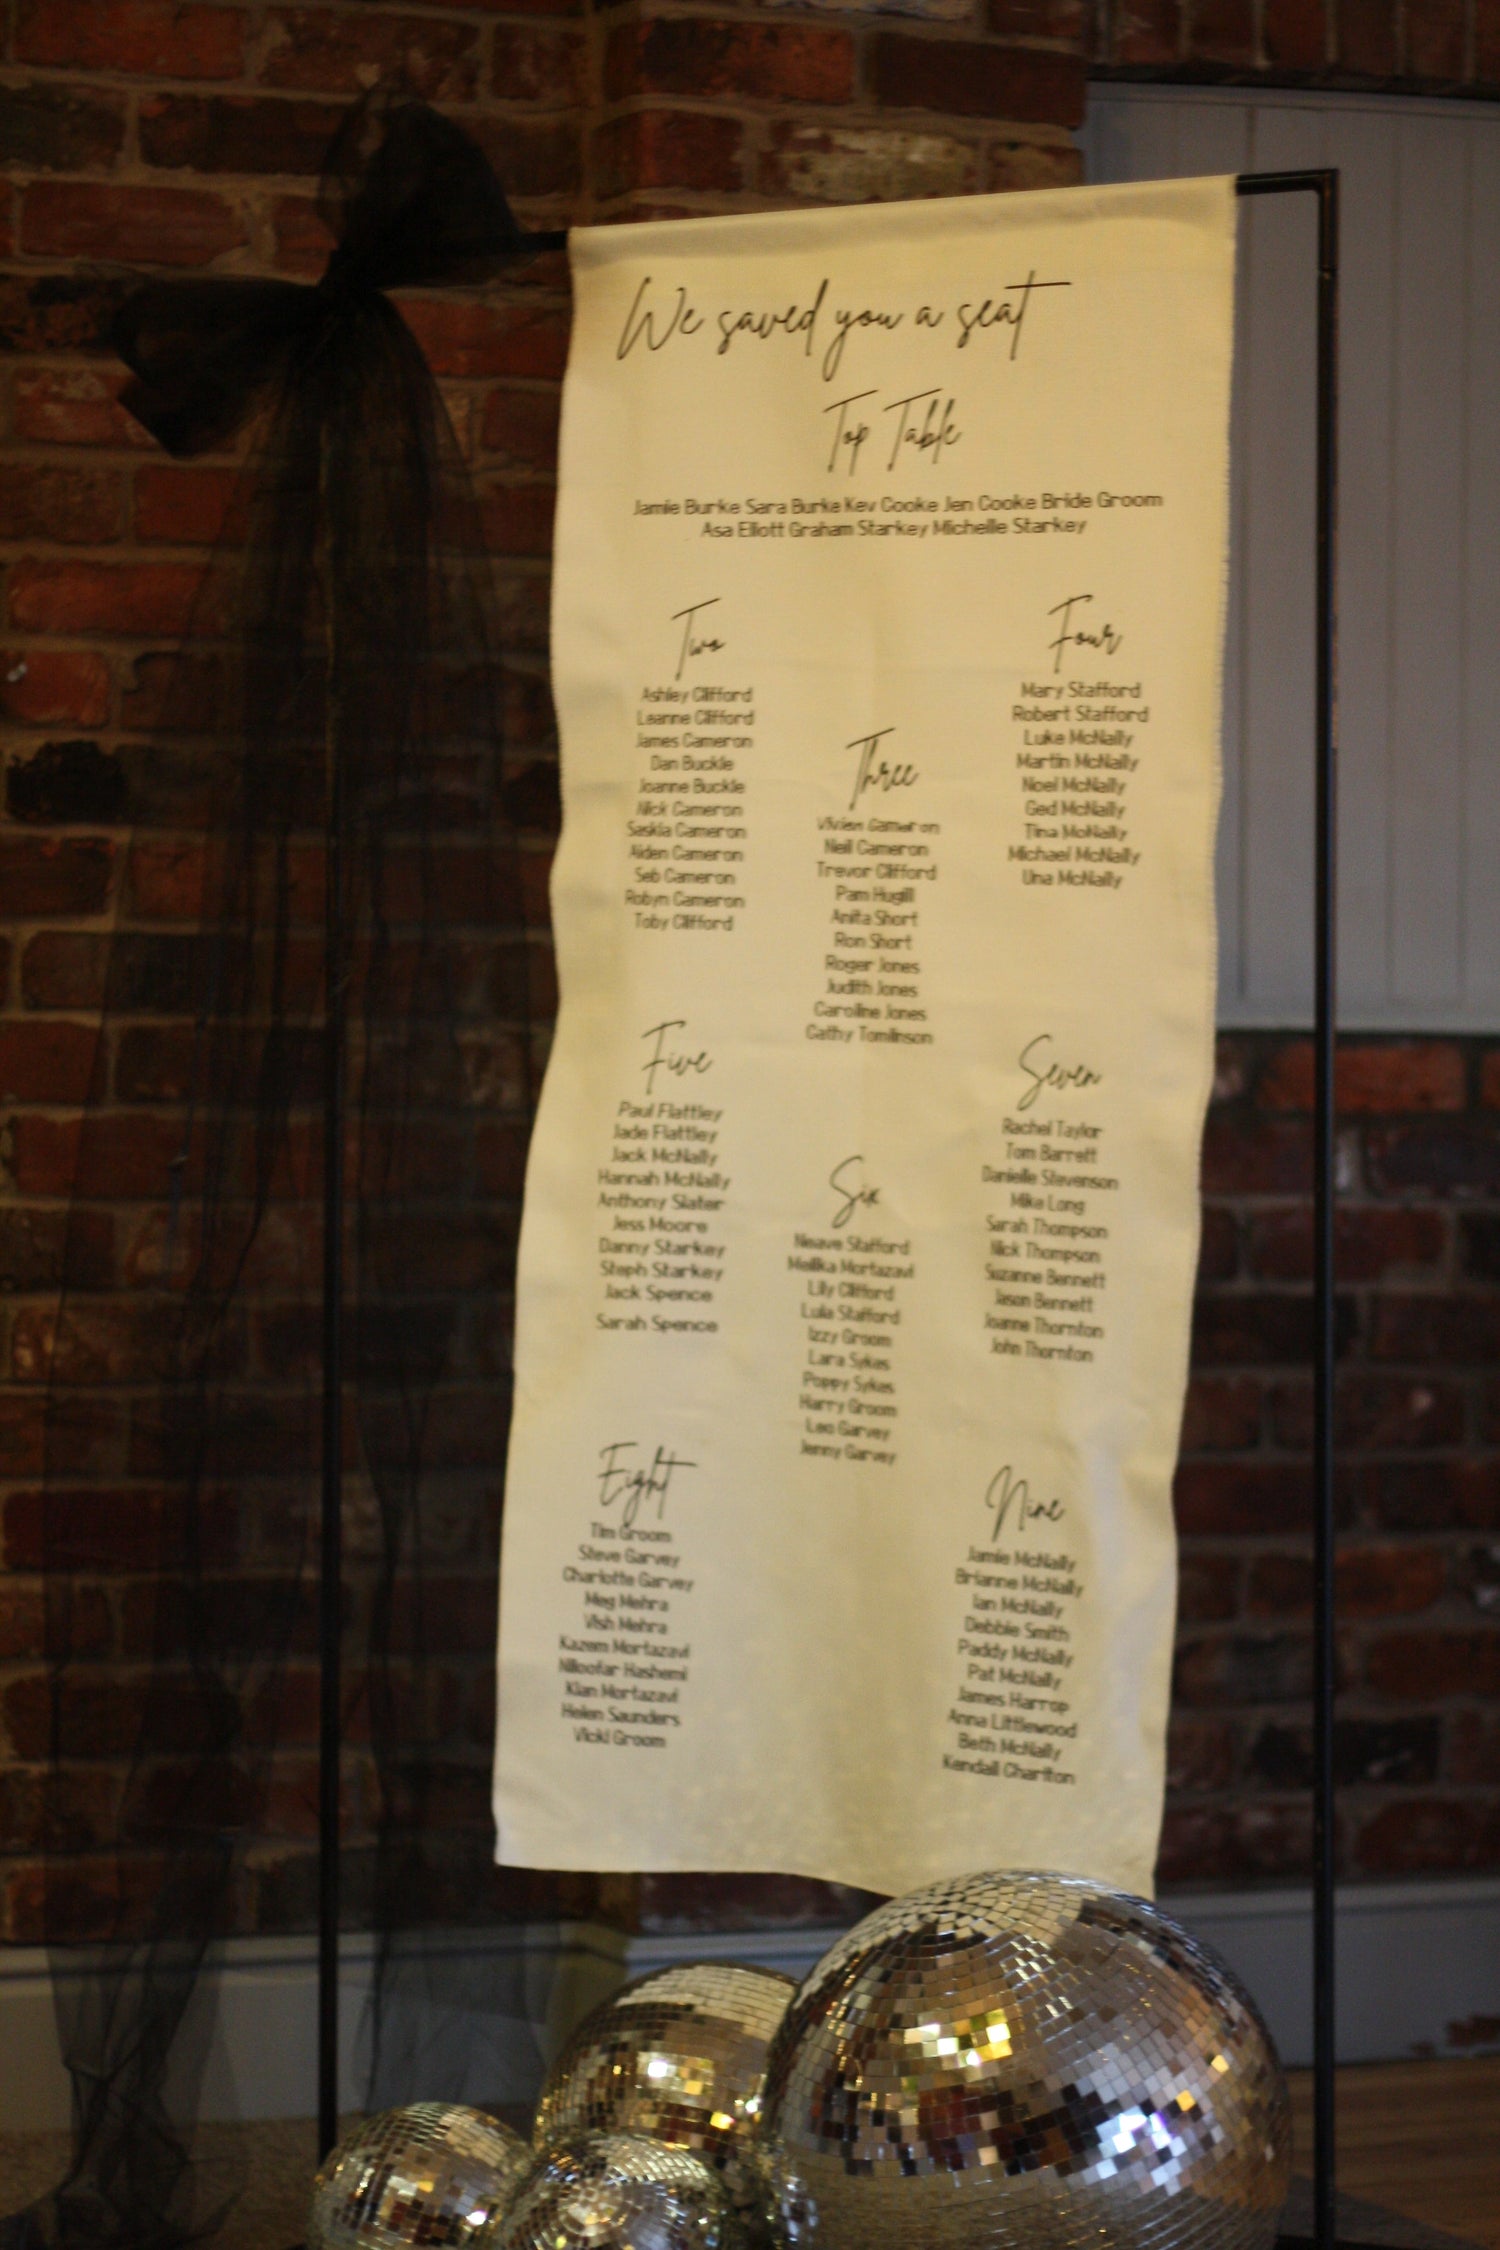 We saved you a seat
Top Table
Jamie Burke Sara Burke Kev Cooke Jen Cooke Bride Groom
Asa Elliott Graham Starkey Michelle Starkey
Two
Ashley Clifford
Leanne Clifford
James Cameron
Dan Buckle
Joanne Buckle
Nick Cameron
Saskia Cameron
Aiden Cameron
Seb Cameron
Robyn Cameron
Toby Clifford
Three
Vivien Cameron
Neil Cameron
Trevor Clifford
Pam Hugill
Anita Short
Ron Short
Roger Jones
Judith Jones
Caroline Jones
Cathy Tomlinson
Four
Mary Stafford
Robert Stafford
Luke McNally
Martin McNally
Noel McNally
Ged McNally
Tina McNally
Michael McNally
Una McNally
Five
Paul Flattley
Jade Flattley
Jack McNally
Hannah McNally
Anthony Slater
Jess Moore
Danny Starkey
Steph Starkey
Jack Spence
Sarah Spence
Six
Neave Stafford
Melika Mortazavi
Lily Clifford
Lula Stafford
Izzy Groom
Lara Sykes
Poppy Sykes
Harry Groom
Leo Garvey
Jenny Garvey
Seven
Rachel Taylor
Tom Barrett
Danielle Stevenson
Mike Long
Sarah Thompson
Nick Thompson
Suzanne Bennett
Jason Bennett
Joanne Thornton
John Thornton
Eight
Tim Groom
Steve Garvey
Charlotte Garvey
Meg Mehra
Vish Mehra
Kazem Mortazavi
Niloofar Hashemi
Kian Mortazavi
Helen Saunders
Vicki Groom
Nine
Jamie McNally
Brianne McNally
Ian McNally
Debbie Smith
Paddy McNally
Pat McNally
James Harrop
Anna Littlewood
Beth McNally
Kendall Charlton